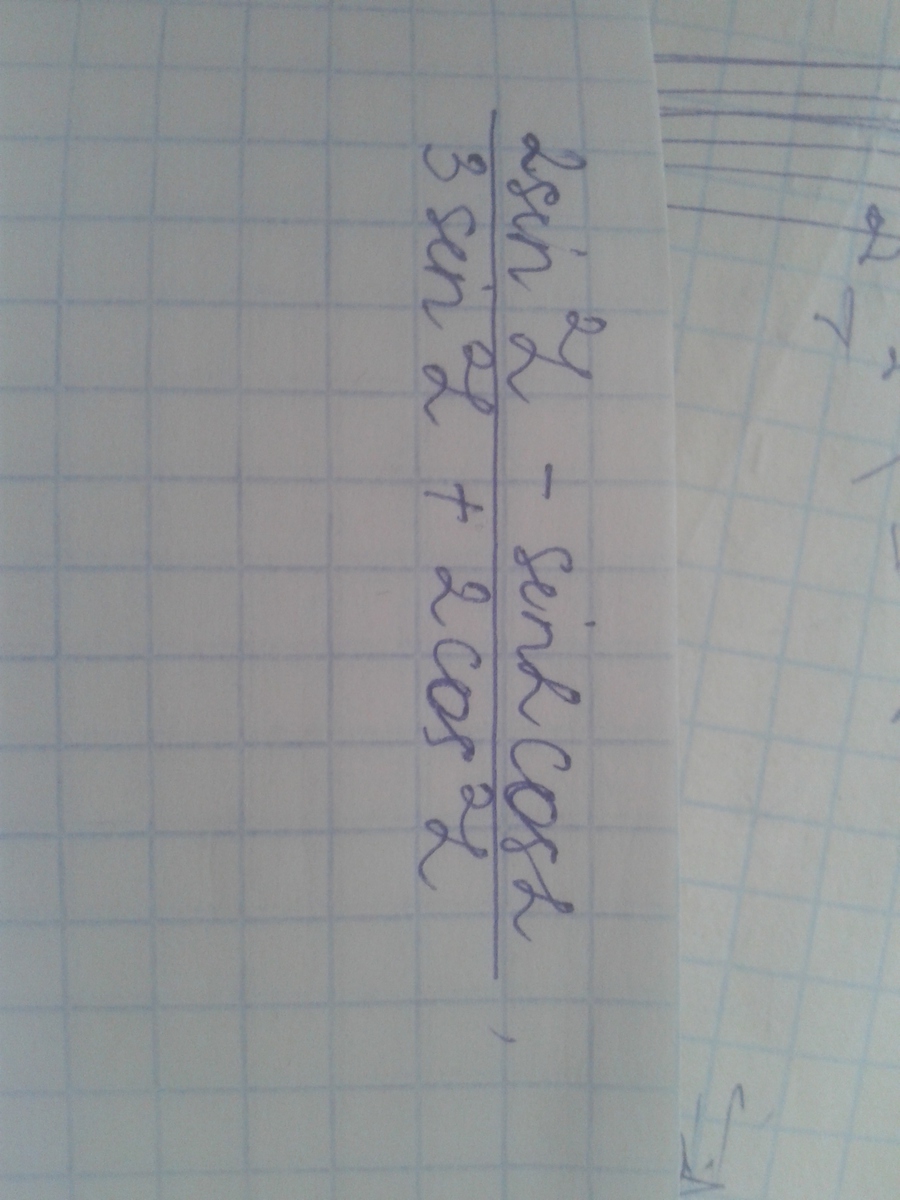 2sin²α - sinα cosα,
3sin²α + 2cos²α